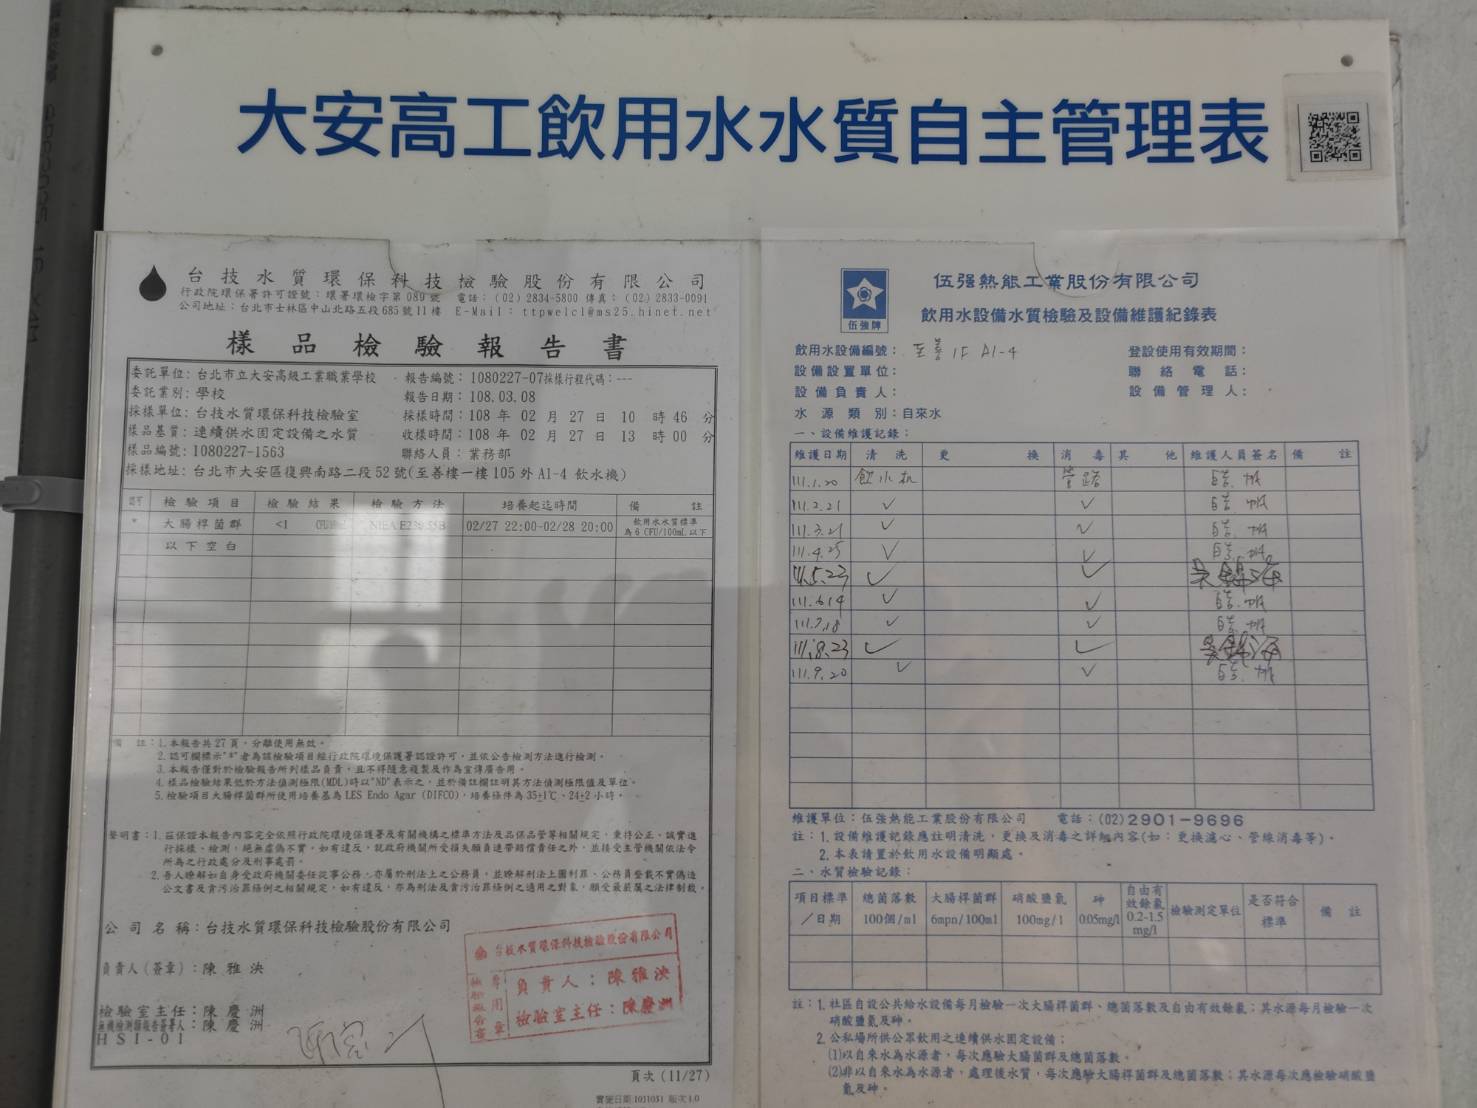 大安高工飲用水水質自主管理表
台技水質環保科技檢驗股份有限公司
行政院環保署許可證號：環署環檢字第089號 電話：(02) 2834-5800 傳真：(02) 2833-0091
公司地址：台北市士林區中山北路五段685號11樓 E-Mail：ttpwelcl@ms25.hinet.net
樣品檢驗報告書
委託單位：台北市立大安高級工業職業學校 報告編號：1080227-07採樣行程代碼：---
委託業別：學校 報告日期：108.03.08
採樣單位：台技水質環保科技檢驗室 採樣時間：108 年 02 月 27 日 10 時 46 分
樣品基質：連續供水固定設備之水質 收樣時間：108 年 02 月 27 日 13 時 00 分
樣品編號：1080227-1563 聯絡人員：業務部
採樣地址：台北市大安區復興南路二段52號(至善樓一樓105外A1-4飲水機)
認可 檢驗項目 檢驗結果 檢驗方法 培養起迄時間 備註
* 大腸桿菌群 <1 NIEA E230.55B 02/27 22:00-02/28 20:00 飲用水水質標準
為6 CFU/100mL以下
以下空白
備 註：1.本報告共27頁，分離使用無效。
2.認可欄標示"*"者為該檢驗項目經行政院環境保護署認證許可，並依公告檢測方法進行檢測。
3.本報告僅對於檢驗報告所列樣品負責，且不得隨意複製及作為宣傳廣告用。
4.樣品檢驗結果低於方法偵測極限(MDL)時以"ND"表示之，並於備註欄註明其方法偵測極限值及單位。
5.檢驗項目大腸桿菌群所使用培養基為LES Endo Agar (DIFCO)，培養條件為35±1℃、24±2小時。
聲明書：1.茲保證本報告內容完全依照行政院環境保護署及有關機構之標準方法及品保品管等相關規定，秉持公正、誠實進
行採樣、檢測，絕無虛偽不實，如有違反，就政府機關所受損失願負連帶賠償責任之外，並接受主管機關依法令
所為之行政處分及刑事處罰。
2.吾人瞭解如自身受政府機關委任從事公務，亦屬於刑法上之公務員，並瞭解刑法上圖利罪、公務員登載不實偽造
公文書及貪污治罪條例之相關規定，如有違反，亦為刑法及貪污治罪條例之適用之對象，願受最嚴厲之法律制裁。
公司名稱：台技水質環保科技檢驗股份有限公司
負責人(簽章)：陳雅泱
檢驗室主任：陳慶洲
無機檢測類報告簽署人：陳慶洲
HSI-01
台技水質環保科技檢驗股份有限公司
負責人：陳雅泱
檢驗室主任：陳慶洲
頁次 (11/27)
實施日期 1011031 版次4.0
伍強牌
伍强熱能工業股份有限公司
飲用水設備水質檢驗及設備維護紀錄表
飲用水設備編號：至善 1F A1-4 登設使用有效期間：
設備設置單位： 聯絡電話：
設備負責人： 設備管理人：
水源類別：自來水
一、設備維護記錄：
維護日期 清洗 更換 消毒 其他 維護人員簽名 備註
111.1.20 飲水机 管路
111.2.21 ✓ ✓
111.3.21 ✓ ✓
111.4.25 ✓ ✓
111.5.23 ✓ ✓
111.6.14 ✓ ✓
111.7.18 ✓ ✓
111.8.23 ✓ ✓
111.9.20 ✓ ✓
維護單位：伍強熱能工業股份有限公司 電話：(02)2901-9696
註：1.設備維護記錄應註明清洗，更換及消毒之詳細內容(如：更換濾心、管線消毒等)。
2.本表請置於飲用水設備明顯處。
二、水質檢驗記錄：
項目標準／日期 總菌落數 100個/ml 大腸桿菌群 6mpn/100ml 硝酸鹽氮 100mg/l 砷 0.05mg/l 自由有效餘氯 0.2-1.5 mg/l 檢驗測定單位 是否符合標準 備註
註：1.社區自設公共給水設備每月檢驗一次大腸桿菌群、總菌落數及自由有效餘氯；其水源每月檢驗一次
硝酸鹽氮及砷。
2.公私場所供公眾飲用之連續供水固定設備：
(1)以自來水為水源者，每次應驗大腸桿菌群及總菌落數。
(2)非以自來水為水源者，處理後水質，每次應驗大腸桿菌群及總菌落數；其水源每次應檢驗硝酸鹽
氮及砷。